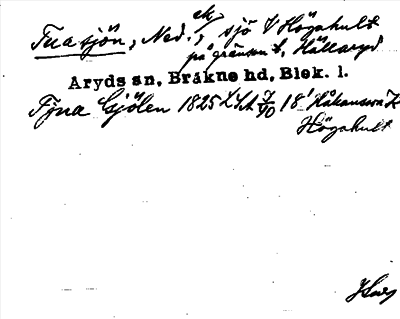 Tuasjön, Ned. ek., sjö t Högahult
på gränsen t. Hällaryd
Aryds sn, Bräkne hd, Blek. l.
Sjölen 1825 LSA 7/90 18' Håkansson K
Högahult